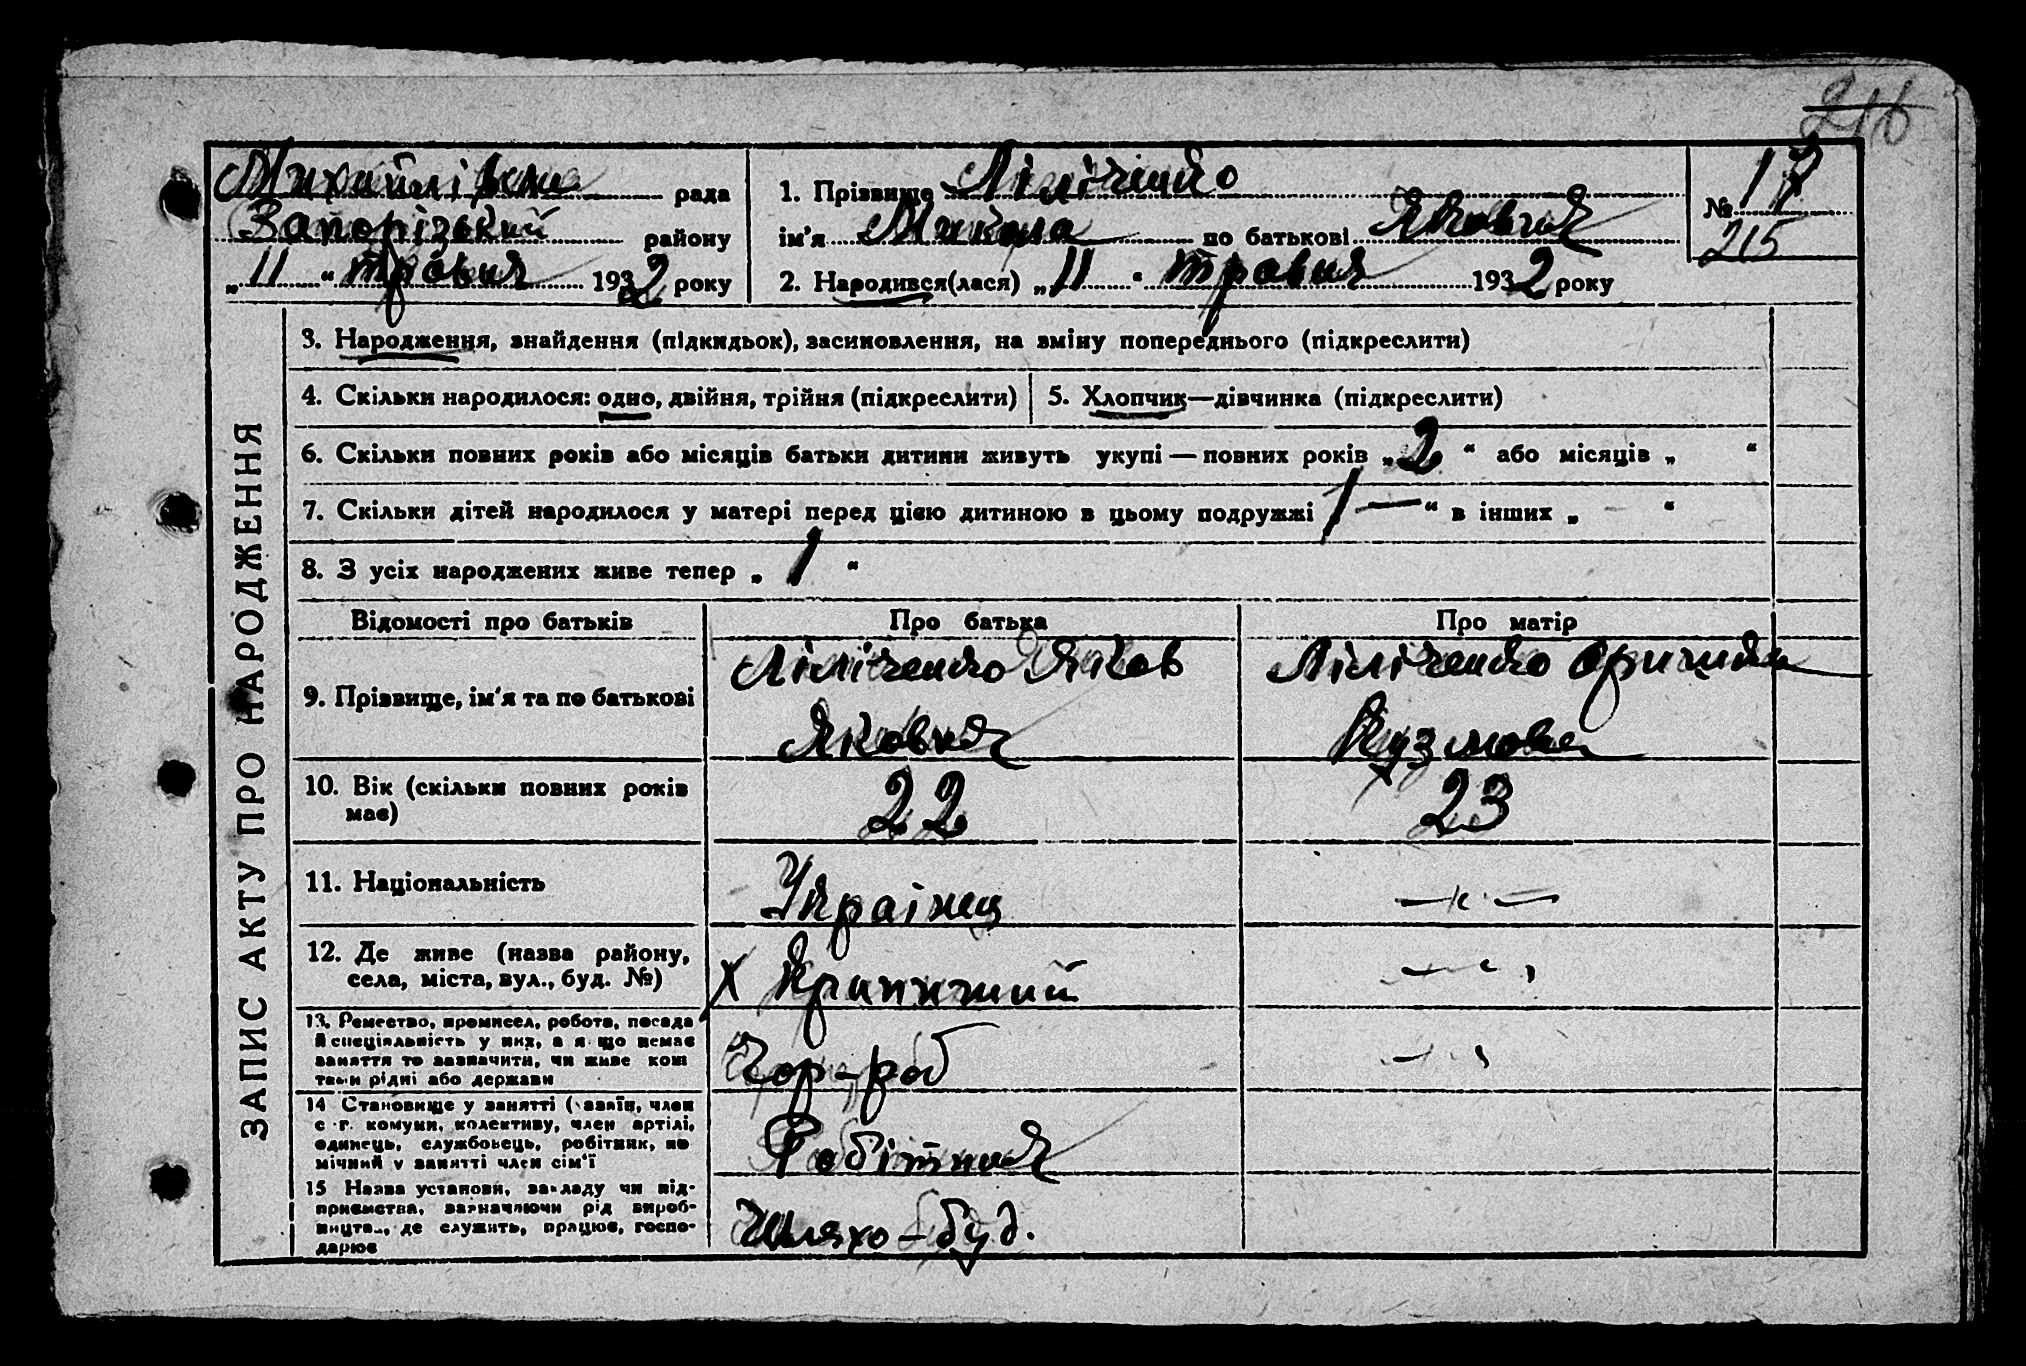 216
Михайлівска рада
Запорізький району
„ 11 “ травня 1932 року
1. Прізвище Лілі́ченко
ім'я Микола по батькові Якович
2. Народився(лася) „ 11 “ травня 1932 року
№ 17
215
ЗАПИС АКТУ ПРО НАРОДЖЕННЯ
3. Народження, знайдення (підкидьок), засиновлення, на зміну попереднього (підкреслити)
4. Скільки народилося: одно, двійня, трійня (підкреслити)
5. Хлопчик—дівчинка (підкреслити)
6. Скільки повних років або місяців батьки дитини живуть укупі — повних років „ 2 “ або місяців „ “
7. Скільки дітей народилося у матері перед цією дитиною в цьому подружжі „ 1 — “ в інших „ “
8. З усіх народжених живе тепер „ 1 “
Відомості про батьків Про батька Про матір
9. Прізвище, ім'я та по батькові
Ліліченко Яков
Якович
Ліліченко Оришка
Кузмовна
10. Вік (скільки повних років
має)
22
23
11. Національність
Українец
— " —
12. Де живе (назва району,
села, міста, вул., буд. №)
х Криничний
— " —
13. Ремество, промисел, робота, посада
й спеціяльність у них, а якщо немає
заняття то зазначити, чи живе кош
тами рідні або держави
Чор-роб
— " —
14 Становище у занятті (хазяїн, член
с.-г. комуни, колективу, член артілі,
одинець, службовець, робітник, по
мічний у занятті член сім'ї
Робітник
15 Назва установи, закладу чи під-
приємства, зазначаючи рід вироб-
ництва, де служить, працює, госпо-
дарює
Шляхо-буд.